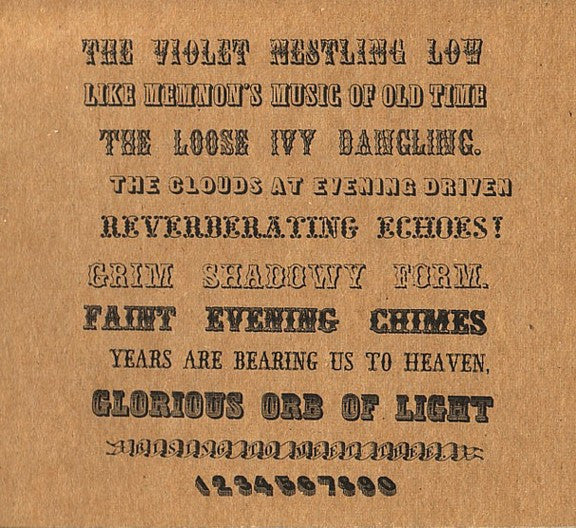 THE VIOLET NESTLING LOW
LIKE MEMNON'S MUSIC OF OLD TIME
THE LOOSE IVY DANGLING.
THE CLOUDS AT EVENING DRIVEN
REVERBERATING ECHOES!
GRIM SHADOWY FORM.
FAINT EVENING CHIMES
YEARS ARE BEARING US TO HEAVEN,
GLORIOUS ORB OF LIGHT
RISING TO MEET THEE
1234567890